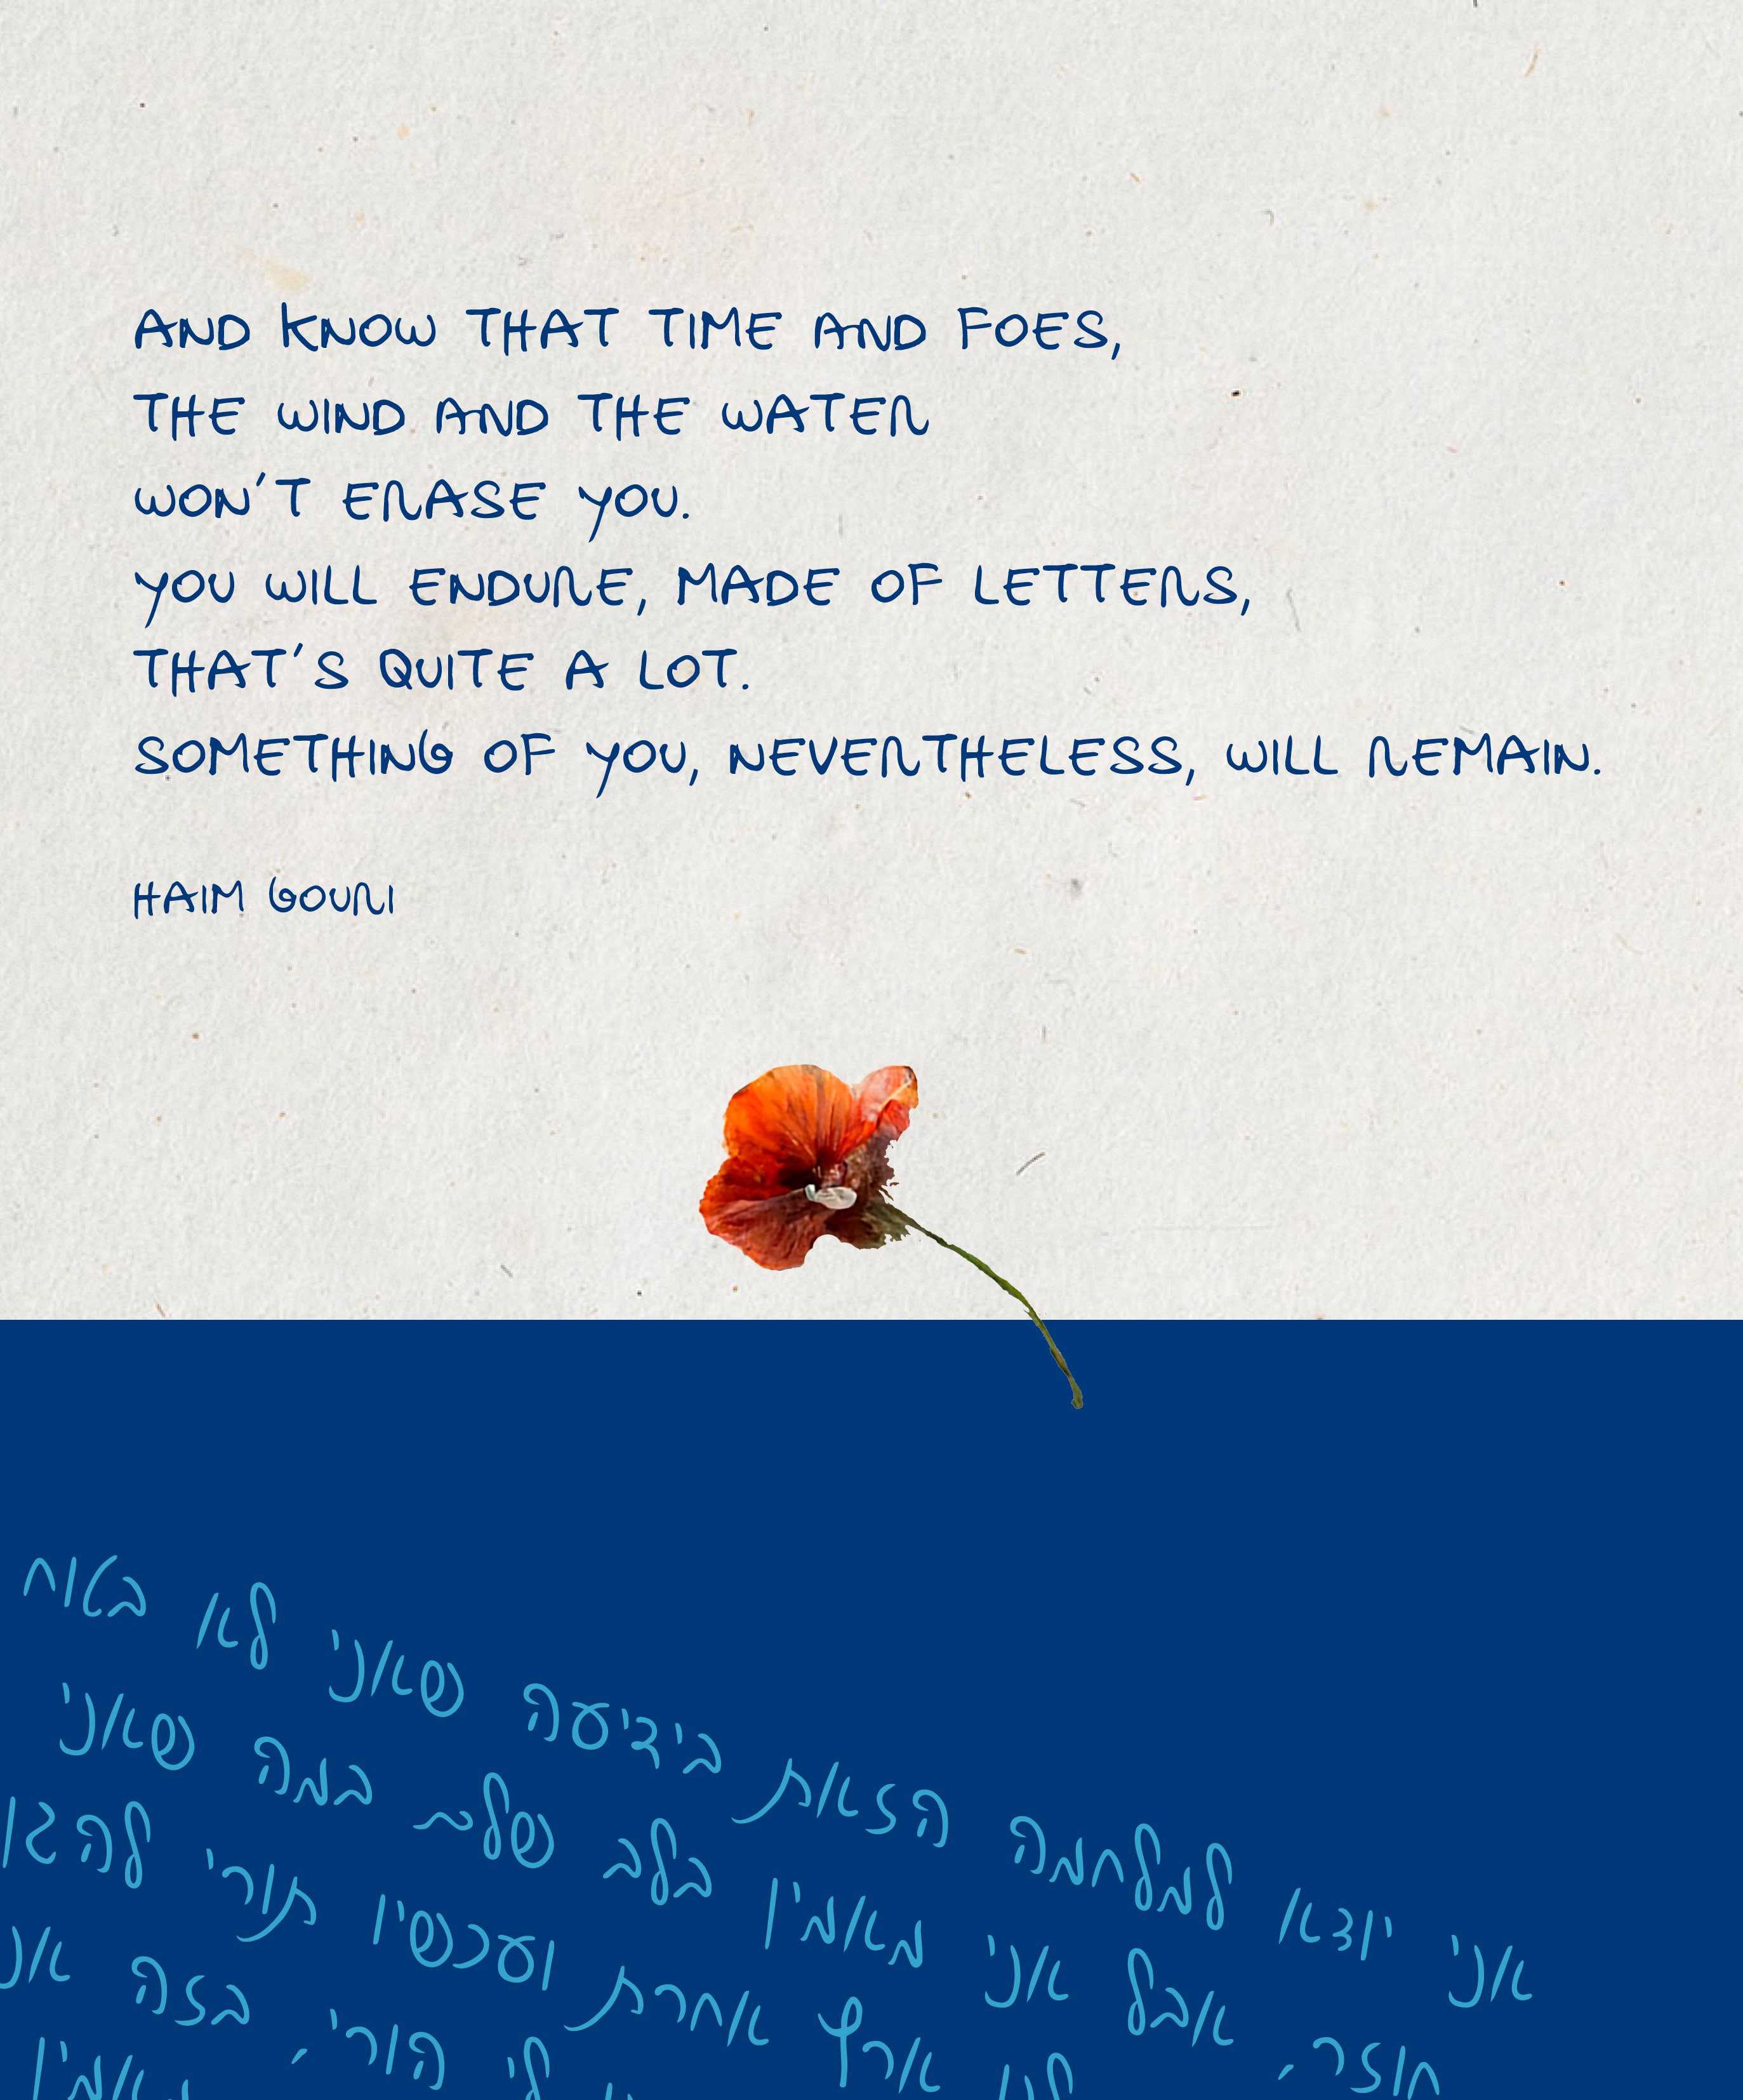 AND KNOW THAT TIME AND FOES,
THE WIND AND THE WATER
WON'T ERASE YOU.
YOU WILL ENDURE, MADE OF LETTERS,
THAT'S QUITE A LOT.
SOMETHING OF YOU, NEVERTHELESS, WILL REMAIN.
HAIM GOURI
אני יוצא למלחמה הזאת בידיעה שאני לא בטוח
חוזר, אבל אני מאמין בלב שלם במה שאני
ארץ אחרת ועכשיו תורי
הורי, בזה